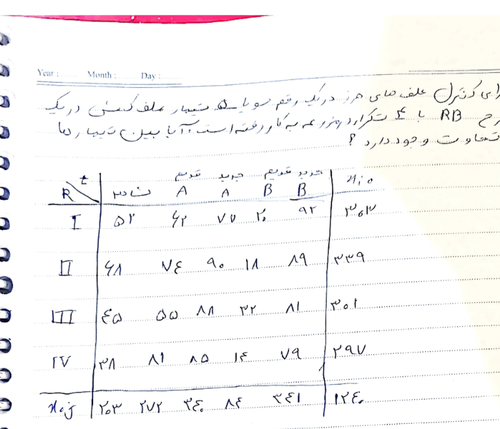 Year : Month : Day :
برای کنترل علف های هرز در یک رقم سویا ۵ تیمار علف کش در یک
طرح RB با ۴ تکرار در مزرعه به کار رفته است. آیا بین تیمارها
تفاوت وجود دارد ؟
t قدیم جدید قدیم جدید
R شاهد A A B B
I ۵۲ ۶۲ ۷۷ ۲۰ ۹۲ ۳۰۳
II ۶۸ ۷۴ ۹۰ ۱۸ ۸۹ ۳۳۹
III ۴۵ ۵۵ ۸۸ ۳۲ ۸۱ ۳۰۱
IV ۳۸ ۸۱ ۸۵ ۱۴ ۷۹ ۲۹۷
۲۰۳ ۲۷۲ ۳۴۰ ۸۴ ۳۴۱ ۱۲۴۰